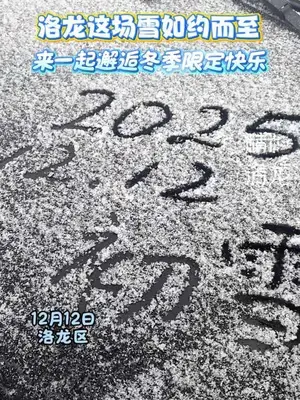 洛龙这场雪如约而至
来一起邂逅冬季限定快乐
2025
12.12
初雪
12月12日
洛龙区